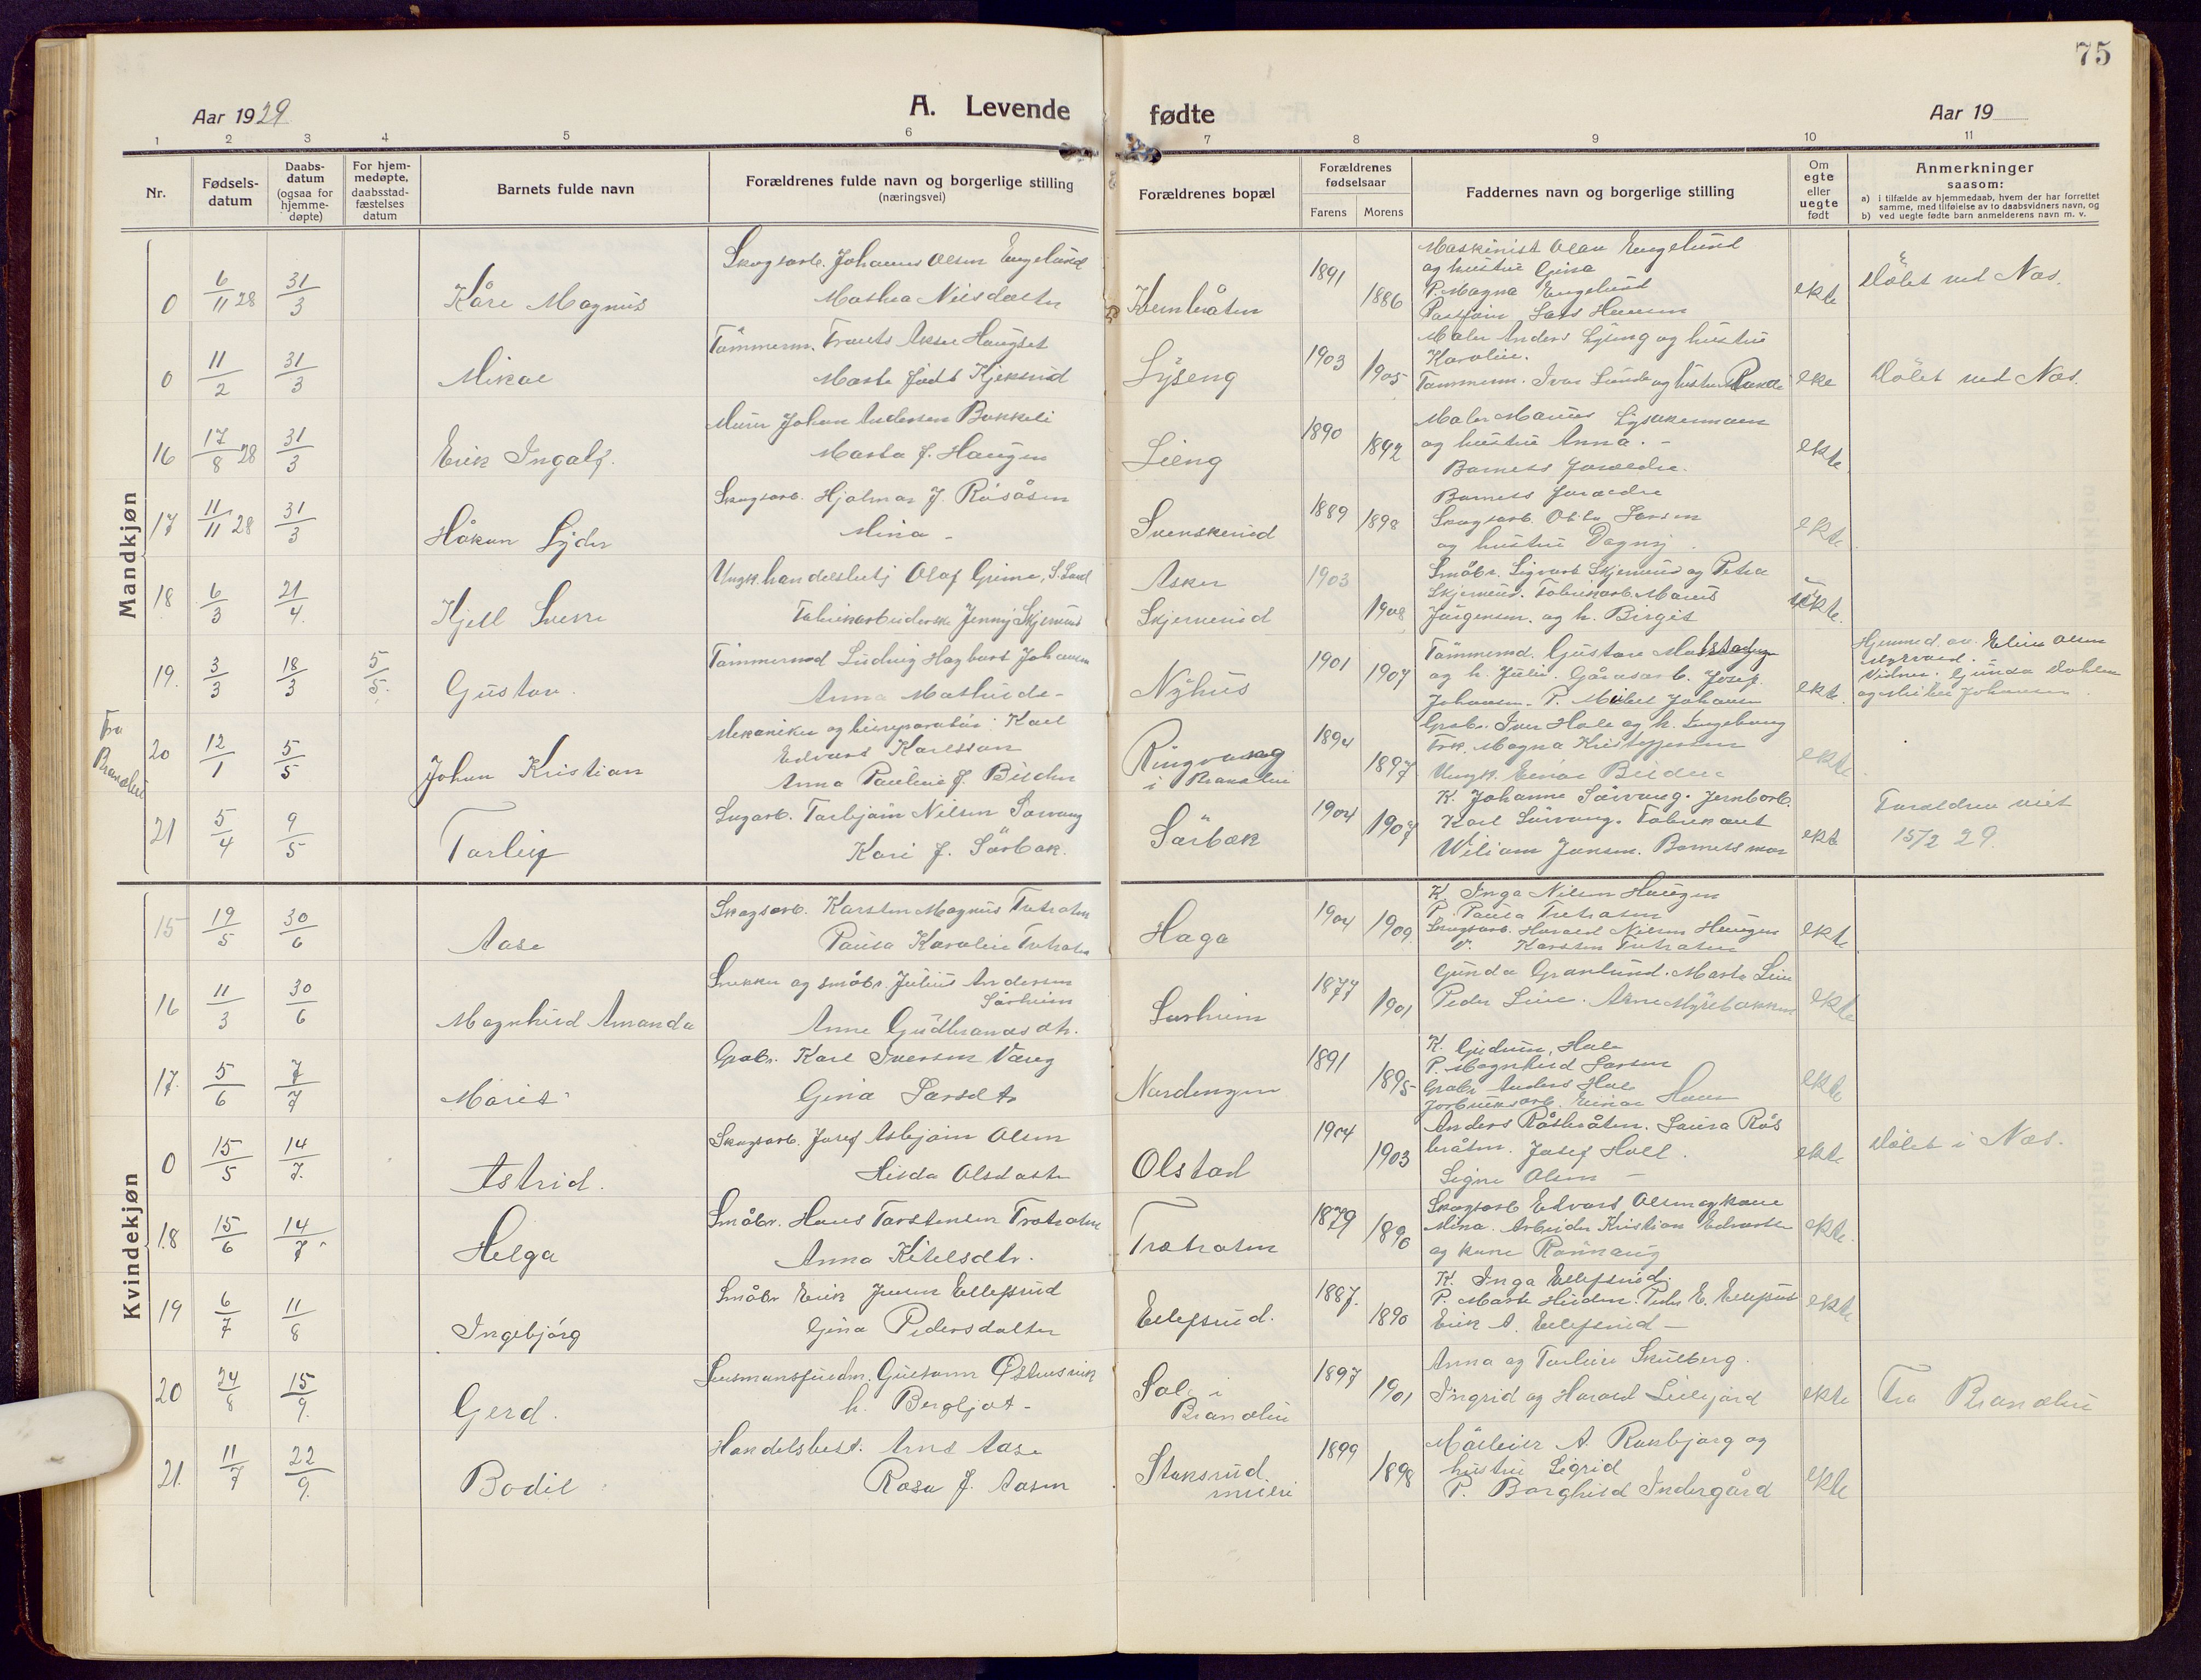 75
Aar 1929
A. Levende
fødte
Aar 19
1 2 3 4 5 6 7 8 9 10 11
Nr.
Fødsels-
datum
Daabs-
datum
(ogsaa for
hjemme-
døpte)
For hjem-
medøpte,
daabsstad-
fæstelses
datum
Barnets fulde navn
Forældrenes fulde navn og borgerlige stilling
(næringsvei)
Forældrenes bopæl
Forældrenes
fødselsaar
Farens Morens
Faddernes navn og borgerlige stilling
Om
egte
eller
uegte
født
Anmerkninger
saasom:
a) i tilfælde av hjemmedaab, hvem der har forrettet
samme, med tilføielse av to daabsvidners navn, og
b) ved uegte fødte barn anmelderens navn m. v.
Mandkjøn
0 6/11 28 31/3 Kåre Magnus
Skogsarb. Johannes Olsen Engelund
Mathea Nilsdatter
1891 1886
Maskinist Olav Engelund
og hustru Gina
P. Magna Engelund
Lars Hansen
ekte
Døbt ved Nes.
0 11/2 31/3 Mikal
Tømmerm. Trants Aksel Haugset
Marte født Kjeksrud
Lyseng
1903 1905
Maler Anders Lyseng og hustru
Karoline.
Tømmerm. Ivar Lunde og hustru Randi
ekte
Døbt ved Nes.
16 17/8 28 31/3 Erik Ingolf.
Murer Johan Andersen Bakkeli
Marta f. Haugen
Lieng
1890 1892
Maler Marius Lysakermoen
og hustru Anna. -
Barnets foreldre.
ekte
17 11/11 28 31/3 Håkon Lyder
Skogsarb. Hjalmar J. Råsåsen
Mina -
Svenskerud
1889 1898
Barnets foreldre
Skogsarb. Otto Larsen
og hustru Dagny.
ekte
18 6/3 21/4. Kjell Sverre
Ungk. handelsbetj Olaf Grime, S. Land
Fabrikarbeiderske Jenny Skjerverud
Asker
Skjerverud
1903 1908
Småbr. Sigvart Skjerverud og Petra
Skjerverud. Fabrikarb. Marius
Jørgensen. og h. Birgit
uekte.
19. 3/3 18/3 5/5. Gustav.
Tømmermd Ludvig Hagbart Johansen
Anna Mathilde -
Nyhus
1901 1907
Tømmermd. Gustav
og h. Julie. Gårdsarb. Josef
Johansen. P. Mikel Johansen
ekte.
Hjemmed. av. Eline Olsen
Vidner. Gunda Dahlen
og Johansen.
Fra
Brandbu
20 12/1 5/5 Johan Kristian
Mekaniker og bilreparatør Karl
Edvard Karlsson
Anna Pauline f. Bilden
Ringvang
i Brandbu
1894 1897
Grbr. Iver Hole og h. Ingeborg
Frk. Magna Kristoffersen
Ungk. Einar Bilden
ekte.
21 5/4 9/5 Torleif
Sagarb. Torbjørn Nilsen Sørvang
Kari f. Sørbak.
Sørbæk
1904 1907
K. Johanne Sørvang. Jernbarb.
Karl Sørvang. Fabrikant
Wiliam Jansen. Barnets mor
ekte
Foreldren viet
15/2 29.
Kvindekjøn
15 19/5 30/6 Aase
Skogsarb. Karsten Magnus Tretraten
Paula Karoline Tretraten
Haga
1904 1909.
K. Inga Nilsen Haugen
P. Paula Tretraten
Skogsarb. Harald Nilsen Haugen
V. Karsten Tretraten
ekte
16 11/3 30/6 Magnhild Amanda
Snekker og småbr. Julius Andersen
Sørheim
Anne Gudbrandsdtr.
Sørheim
1877 1901
Gunda Granlund. Marte Lien
Peder Lien. Arne Myrebakken
ekte
17. 5/6 7/7 Marit
Grbr. Karl Iversen Væreg
Gina Larsdtr
Nordengen
1891 1895
K. Gudrun Hole
P. Magnhild Larsen
Grbr. Anders Hole
Jorbruksarb. Einar Hoen
ekte
0 15/5 14/7. Astrid.
Skogsarb. Josef Asbjørn Olsen
Hilda Olsdatter
Olstad
1904 1903
Anders Råsbråten. Laura Rås
bråten. Josef Holl.
Signe Olsen -
ekte
Døbt i Nes.
18 15/6 14/7. Helga
Småbr. Hans Torstensen Tretraten
Anna Kitelsdtr.
Tretraten
1879 1890
Skogsarb Edvard Olsen og kone
Mina. Arbeider Kristian Edvardsen
og kone Rønnaug
ekte.
19 6/7 11/8 Ingebjørg
Småbr Erik Jensen Ellefsrud
Gina Pedersdatter
Ellefsrud.
1887. 1890
K. Inga Ellefsrud.
P. Marte Hilden. Peder E. Ellefsrud
Erik A. Ellefsrud -
ekte
20 24/8 15/9. Gerd.
Lensmansfuldm. Gustavn Østhusvik
h. Bergljot -
Sol i
Brandbu
1897 1901
Anna og Torleiv Skulberg.
Ingrid og Harald Lillejord
ekte
Fra Brandbu
21. 11/7 22/9. Bodil
Handelsbest. Arnt Aase
Rosa f. Aasen
Stoksrud.
1899 1898
A. Roksbjørg og
hustru Sigrid
P. Borghild Indergård
ekte